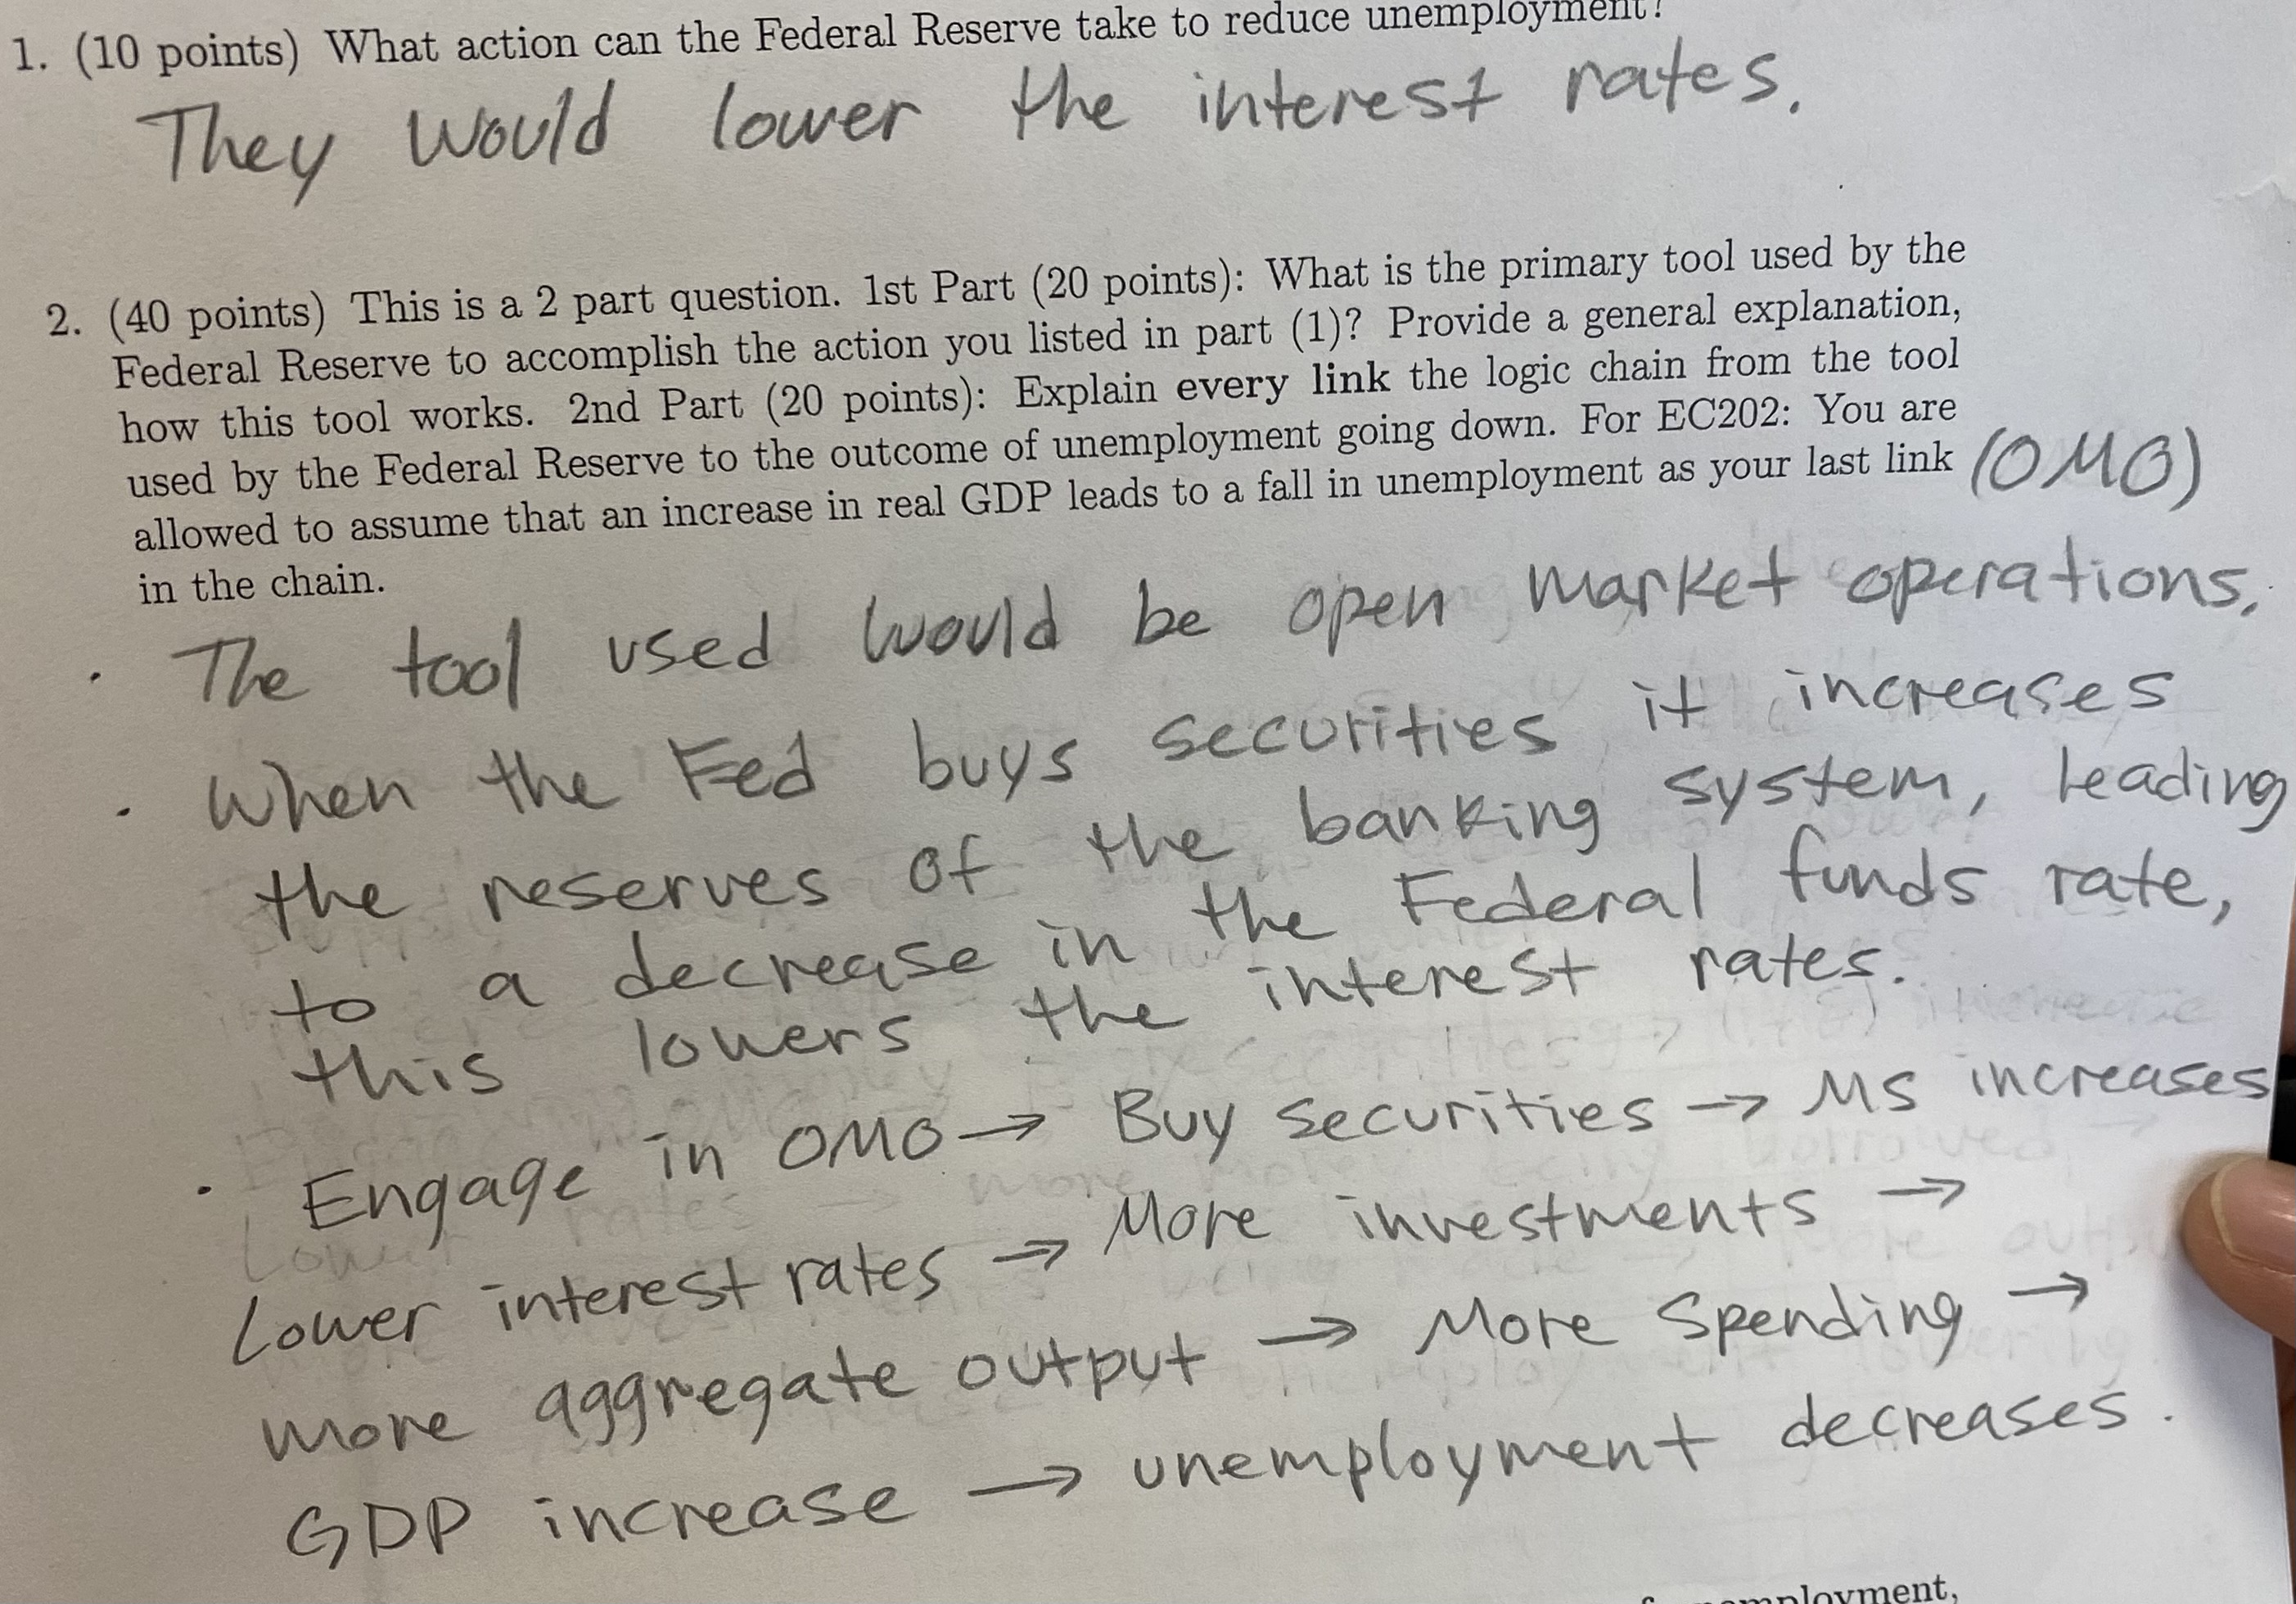 1. (10 points) What action can the Federal Reserve take to reduce unemployment?
They would lower the interest rates.
2. (40 points) This is a 2 part question. 1st Part (20 points): What is the primary tool used by the
Federal Reserve to accomplish the action you listed in part (1)? Provide a general explanation,
how this tool works. 2nd Part (20 points): Explain every link the logic chain from the tool
used by the Federal Reserve to the outcome of unemployment going down. For EC202: You are
allowed to assume that an increase in real GDP leads to a fall in unemployment as your last link
in the chain.
(OMO)
· The tool used would be open market operations.
· When the Fed buys securities it increases
the reserves of the banking system, leading
to a decrease in the Federal funds rate,
this lowers the interest rates.
· Engage in OMO → Buy securities → MS increases
Lower interest rates → More investments →
more aggregate output → More Spending →
GDP increase → unemployment decreases.
unemployment,